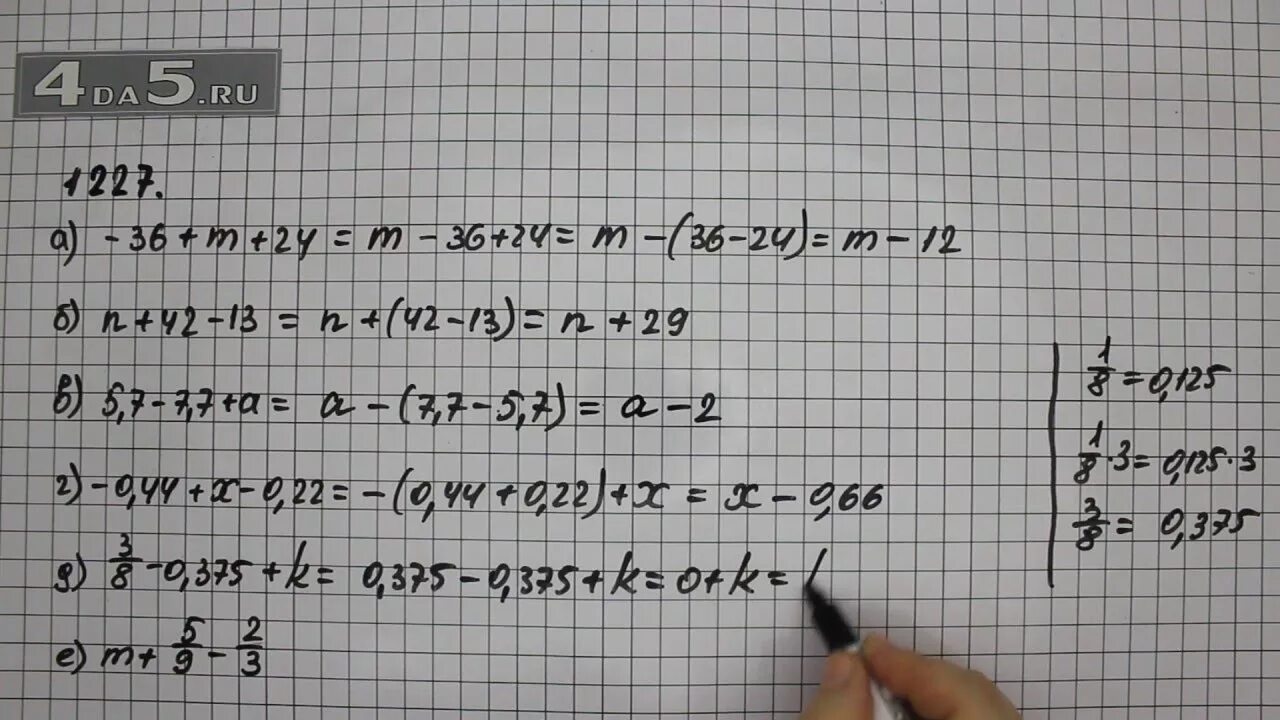 4DA5.RU
1227.
а) -36 + m + 24 = m - 36 + 24 = m - (36 - 24) = m - 12
б) n + 42 - 13 = n + (42 - 13) = n + 29
в) 5,7 - 7,7 + a = a - (7,7 - 5,7) = a - 2
г) -0,44 + x - 0,22 = -(0,44 + 0,22) + x = x - 0,66
д) 3/8 - 0,375 + k = 0,375 - 0,375 + k = 0 + k =
е) m + 5/9 - 2/3
1/8 = 0,125
1/8 · 3 = 0,125 · 3
3/8 = 0,375